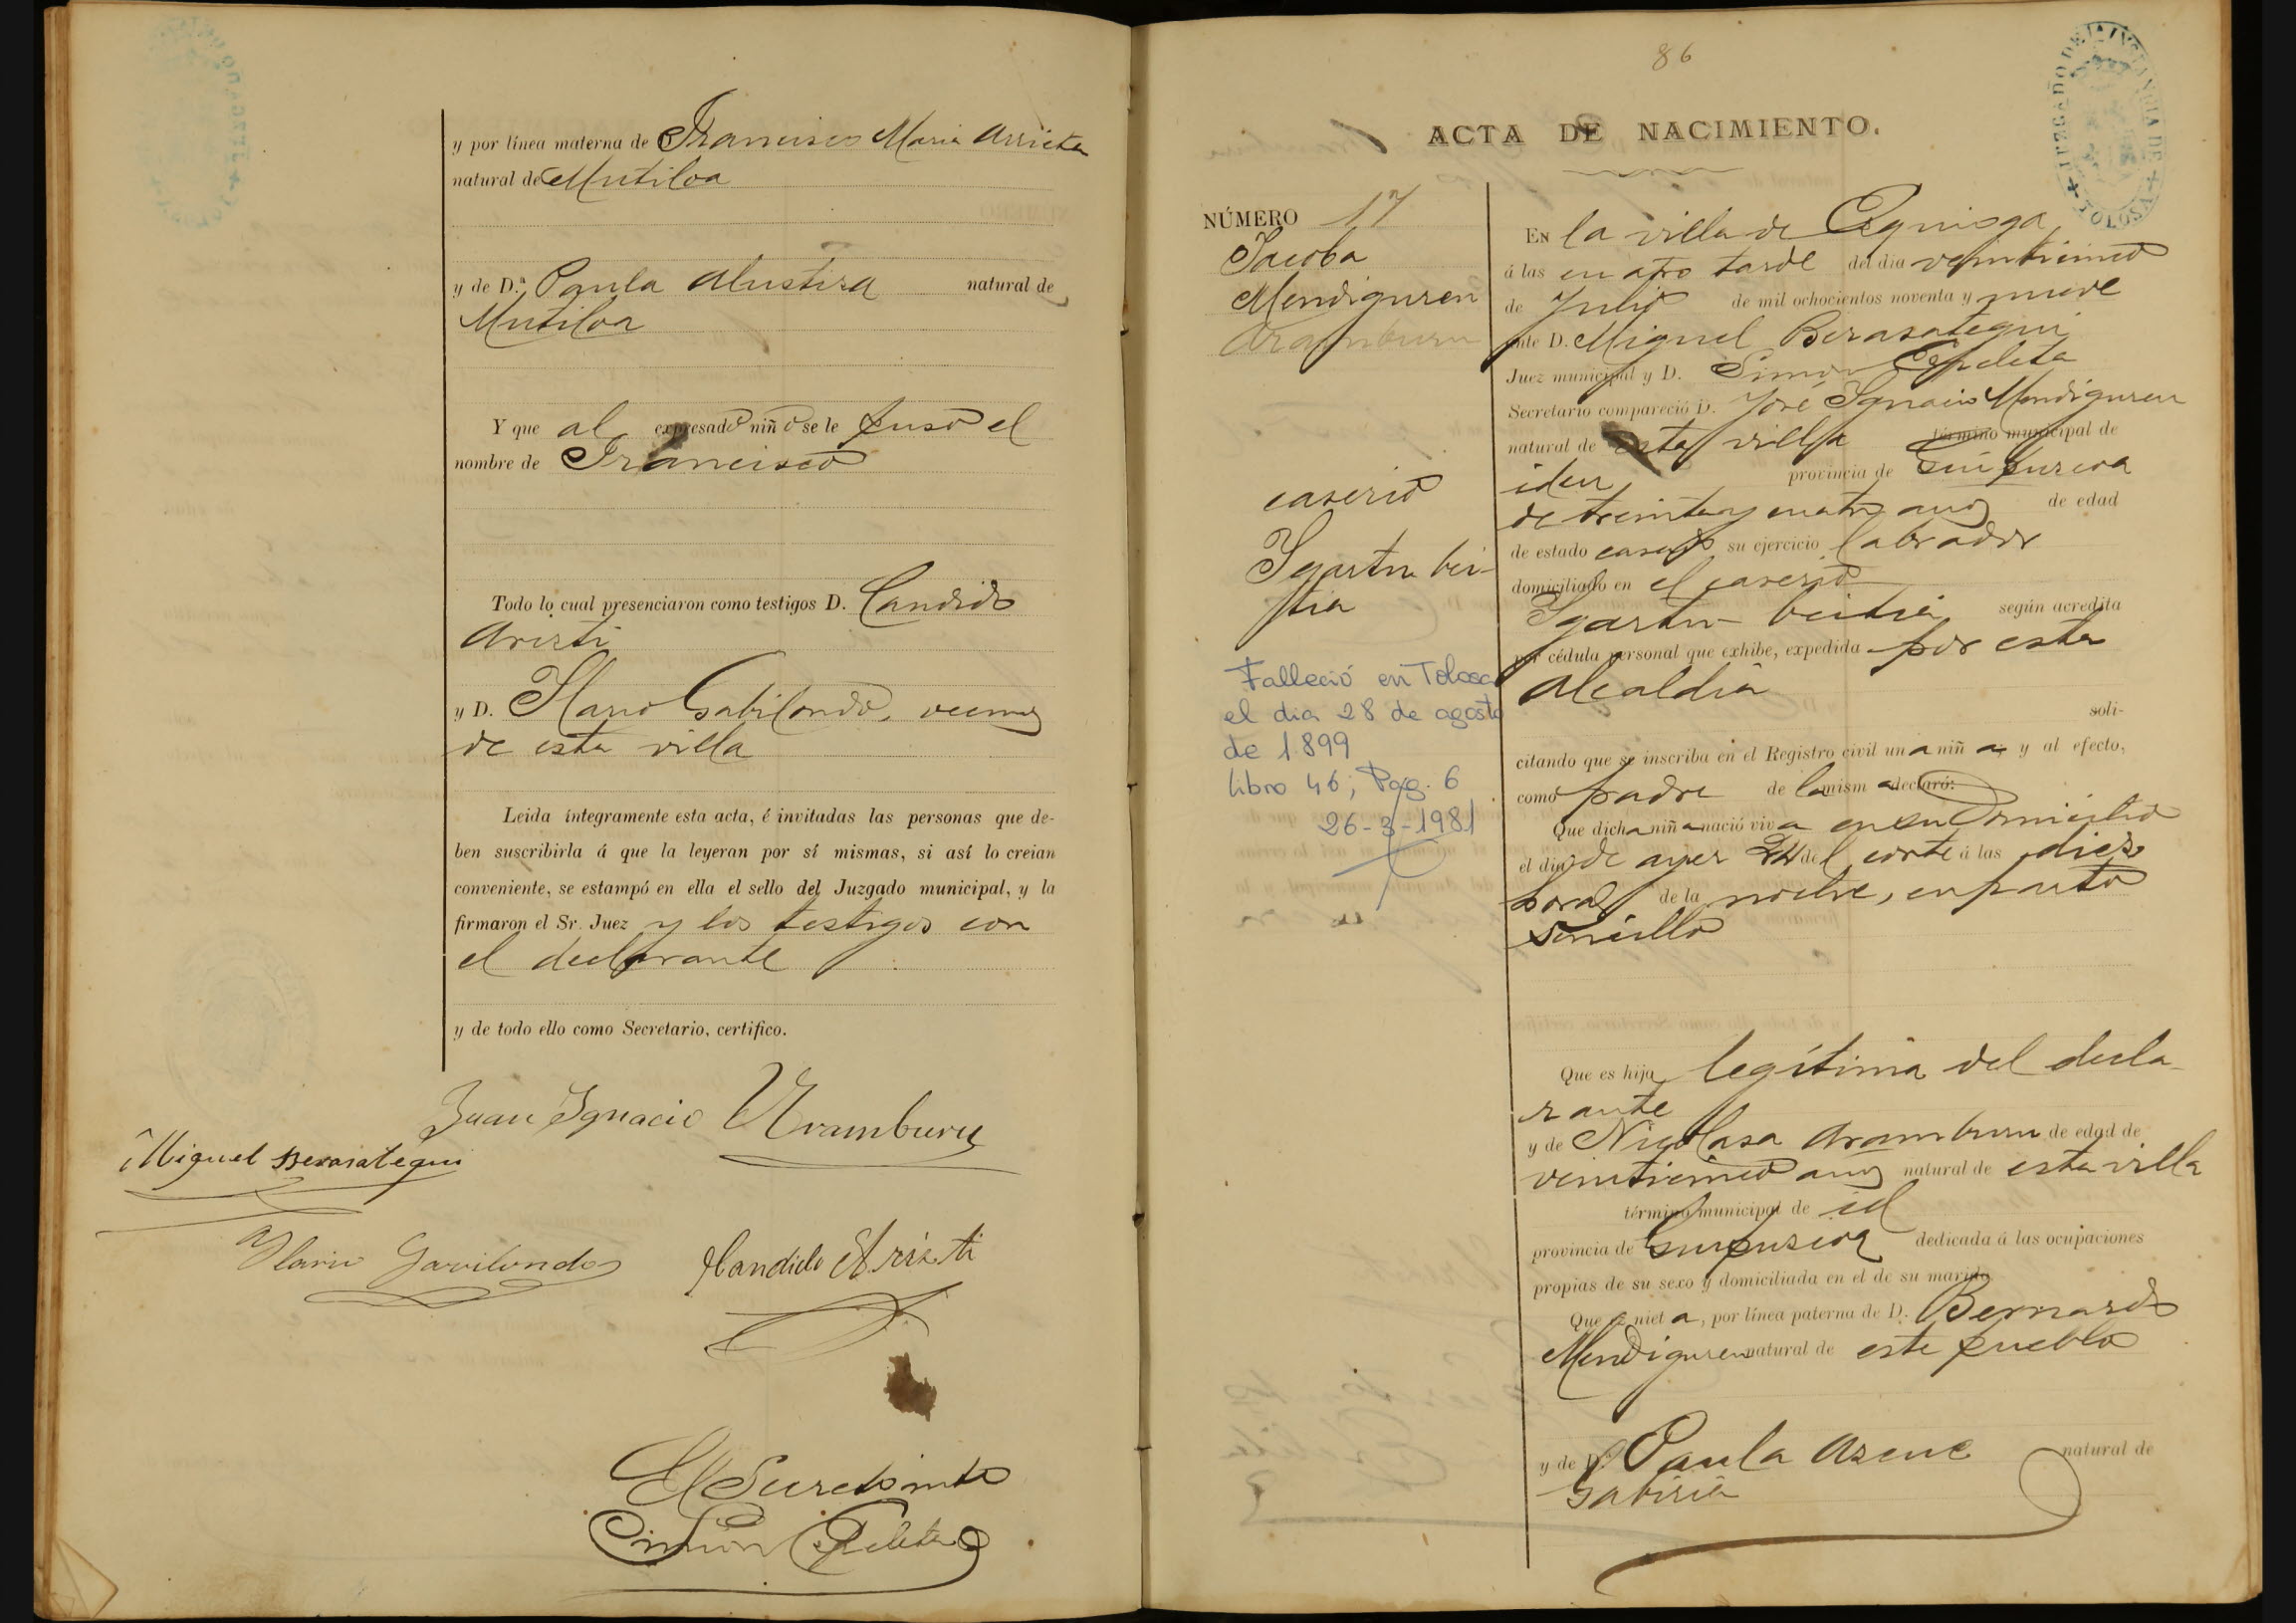 y por línea materna de Francisco Maria Arrieta
natural de Mutiloa
y de D.ª Paula Alustiza natural de
Mutiloa
Y que al expresado niño se le puso el
nombre de Francisco
Todo lo cual presenciaron como testigos D. Candido
Aristi
y D. Ilario Gabilondo, vecinos
de esta villa
Leida íntegramente esta acta, é invitadas las personas que de-
ben suscribirla á que la leyeran por sí mismas, si así lo creian
conveniente, se estampó en ella el sello del Juzgado municipal, y la
firmaron el Sr. Juez y los testigos con
el declarante
y de todo ello como Secretario, certifico.
Juan Ignacio Aramburu
Miguel Berasategui
Ilario Gavilondo Candido Aristi
El Secretario
Simon Espeleta
86
JUZGADO DE 1.ª INSTANCIA DE TOLOSA
ACTA DE NACIMIENTO.
NÚMERO 17
Jacoba
Mendiguren
Aramburu
caserio
Igartu bei-
tia
Falleció en Tolosa
el dia 28 de agosto
de 1899
libro 46; Pag. 6
26-3-1981
En la villa de Ezquioga
á las cuatro tarde del dia veinticinco
de Julio de mil ochocientos noventa y nueve
ante D. Miguel Berasategui
Juez municipal y D. Simon Espeleta
Secretario compareció D. José Ignacio Mendiguren
natural de esta villa término municipal de
idem provincia de Guipuzcoa
de treinta y cuatro anos de edad
de estado casado su ejercicio labrador
domiciliado en el caserio
Igartu-beitia según acredita
por cédula personal que exhibe, expedida por esta
alcaldia
soli-
citando que se inscriba en el Registro civil una niña, y al efecto,
como padre de la misma declaró:
Que dicha niña nació viva en su domicilio
el dia de ayer 24 del corte á las diez
horas de la noche, en parto
sencillo
Que es hija legítima del decla-
rante
y de Nicolasa Aramburu de edad de
veinticinco anos natural de esta villa
término municipal de id
provincia de Guipuzcoa dedicada á las ocupaciones
propias de su sexo y domiciliada en el de su marido
Que es nieta, por línea paterna de D. Bernardo
Mendiguren natural de este pueblo
y de D.ª Paula Azcue natural de
Gabiria